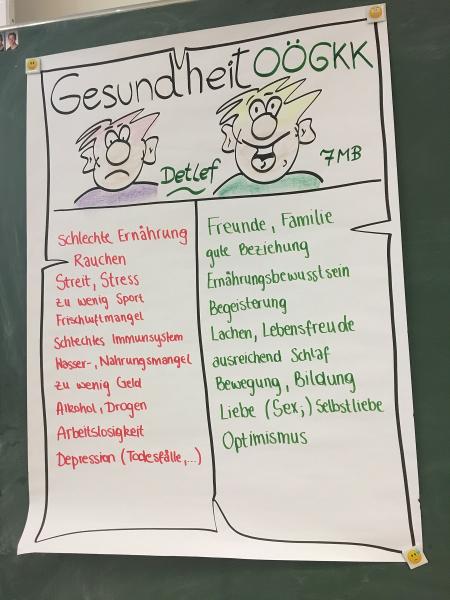 Gesundheit OÖGKK
Detlef
7MB
Schlechte Ernährung
Rauchen
Streit, Stress
zu wenig Sport
Frischluftmangel
Schlechtes Immunsystem
Wasser-, Nahrungsmangel
zu wenig Geld
Alkohol, Drogen
Arbeitslosigkeit
Depression (Todesfälle,...)
Freunde, Familie
gute Beziehung
Ernährungsbewusstsein
Begeisterung
Lachen, Lebensfreude
ausreichend Schlaf
Bewegung, Bildung
Liebe (Sex,;) Selbstliebe
Optimismus